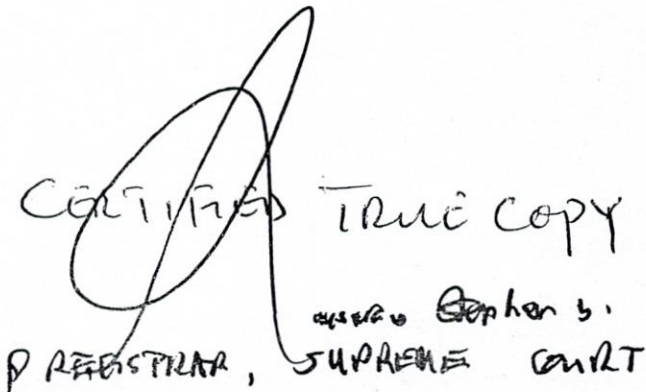 CERTIFIED TRUE COPY
Stephen S.
REGISTRAR, SUPREME COURT